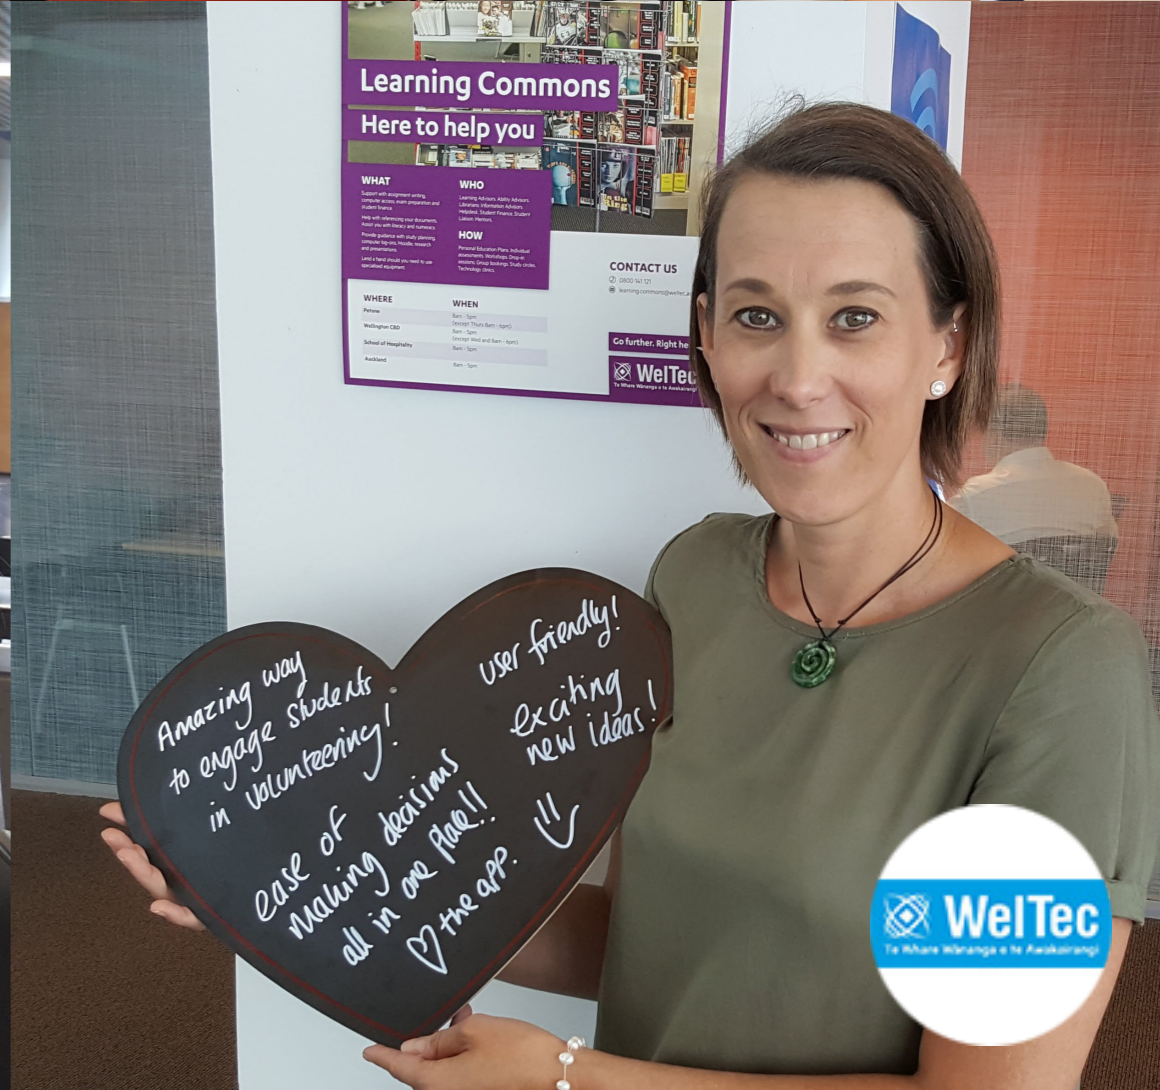 Learning Commons
Here to help you
WHAT
Support with assignment writing,
computer access, exam preparation and
student finance
Help with referencing your documents.
Assist you with literacy and numeracy.
Provide guidance with study planning
computer log-ins, Moodle, research
and presentations.
Lend a hand should you need to use
specialised equipment.
WHO
Learning Advisors, Ability Advisors,
Librarians, Information Advisors,
Helpdesk, Student Finance, Student
Liaison, Mentors.
HOW
Personal Education Plans, Individual
assessments, Workshops, Drop-in
sessions, Group bookings, Study circles,
Technology clinics.
CONTACT US
0800 141 121
WHERE
WHEN
Petone
8am - 5pm
(except Thurs 8am - 6pm)
Wellington CBD
8am - 5pm
(except Wed and 8am - 6pm)
School of Hospitality
8am - 5pm
Auckland
8am - 5pm
Go further. Right he
WelTec
Te Whare Wānanga o te Awakairangi
Amazing way
to engage students
in volunteering!
ease of
making decisions
all in one place!!
♡ the app.
user friendly!
exciting
new ideas!
WelTec
Te Whare Wānanga o te Awakairangi